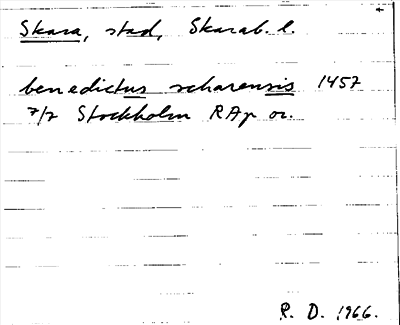 Skara, stad, Skarab. l.
benedictus scharensis 1457
7/7 Stockholm RAp or.
R. D. 1966.